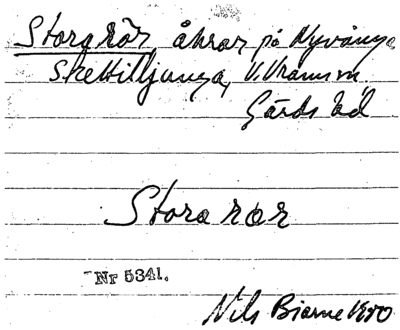 Storarör, åkrar på Nyvånga
Skettilljunga, V. Vram sn.
Gärds hd
Stora rør
Nr 5341.
Nils Bjarne 1950